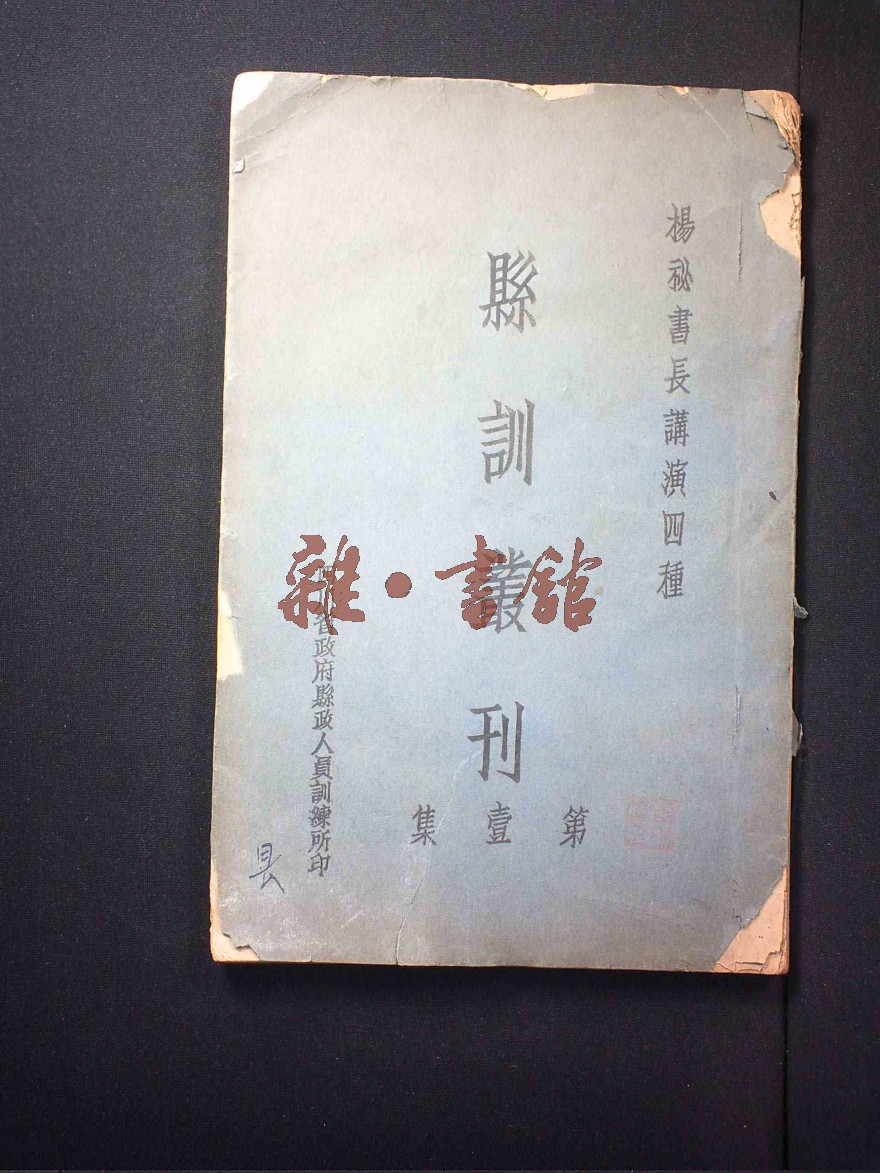 楊祕書長講演四種
縣訓叢刊
第壹集
省政府縣政人員訓練所印
雜·書館